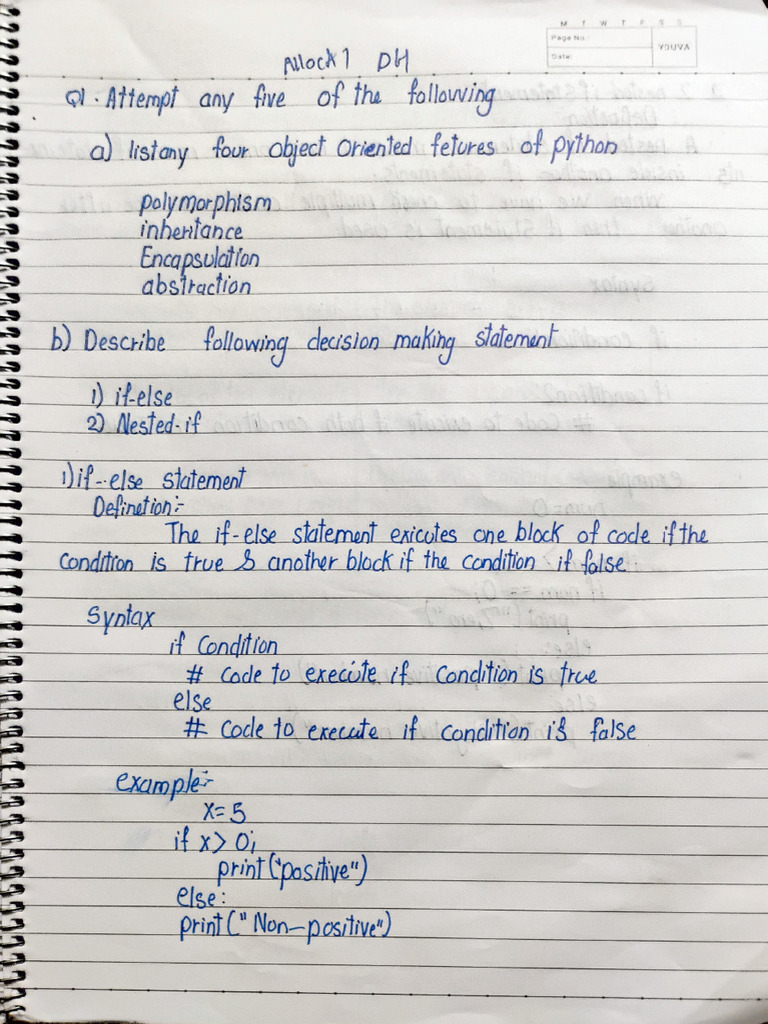 M T W T F S S
Page No.:
Date:
YOUVA
Mock 1 DH
Q1. Attempt any five of the following
a) list any four object oriented fetures of python
polymorphism
inheritance
Encapsulation
abstraction
b) Describe following decision making statement
1) if-else
2) Nested-if
1) if-else statement
Defination:-
The if-else statement exicutes one block of code if the
Condition is true & another block if the condition if false
Syntax
if Condition
# Code to execute if Condition is true
else
# Code to execute if condition is false
example:-
x=5
if x> 0;
print("positive")
else:
print("Non-positive")